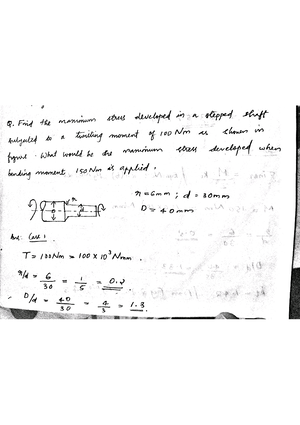 Q. Find the maximum stress developed in a stepped shaft
subjected to a twisting moment of 100 Nm as shown in
figure. What would be the maximum stress developed when
bending moment 150 Nm is applied.
r = 6mm ; d = 30mm
D = 40mm
Ans: Case 1.
T = 100Nm = 100 × 10³ Nmm.
r/d = 6/30 = 1/5 = 0.2
D/d = 40/30 = 4/3 = 1.3